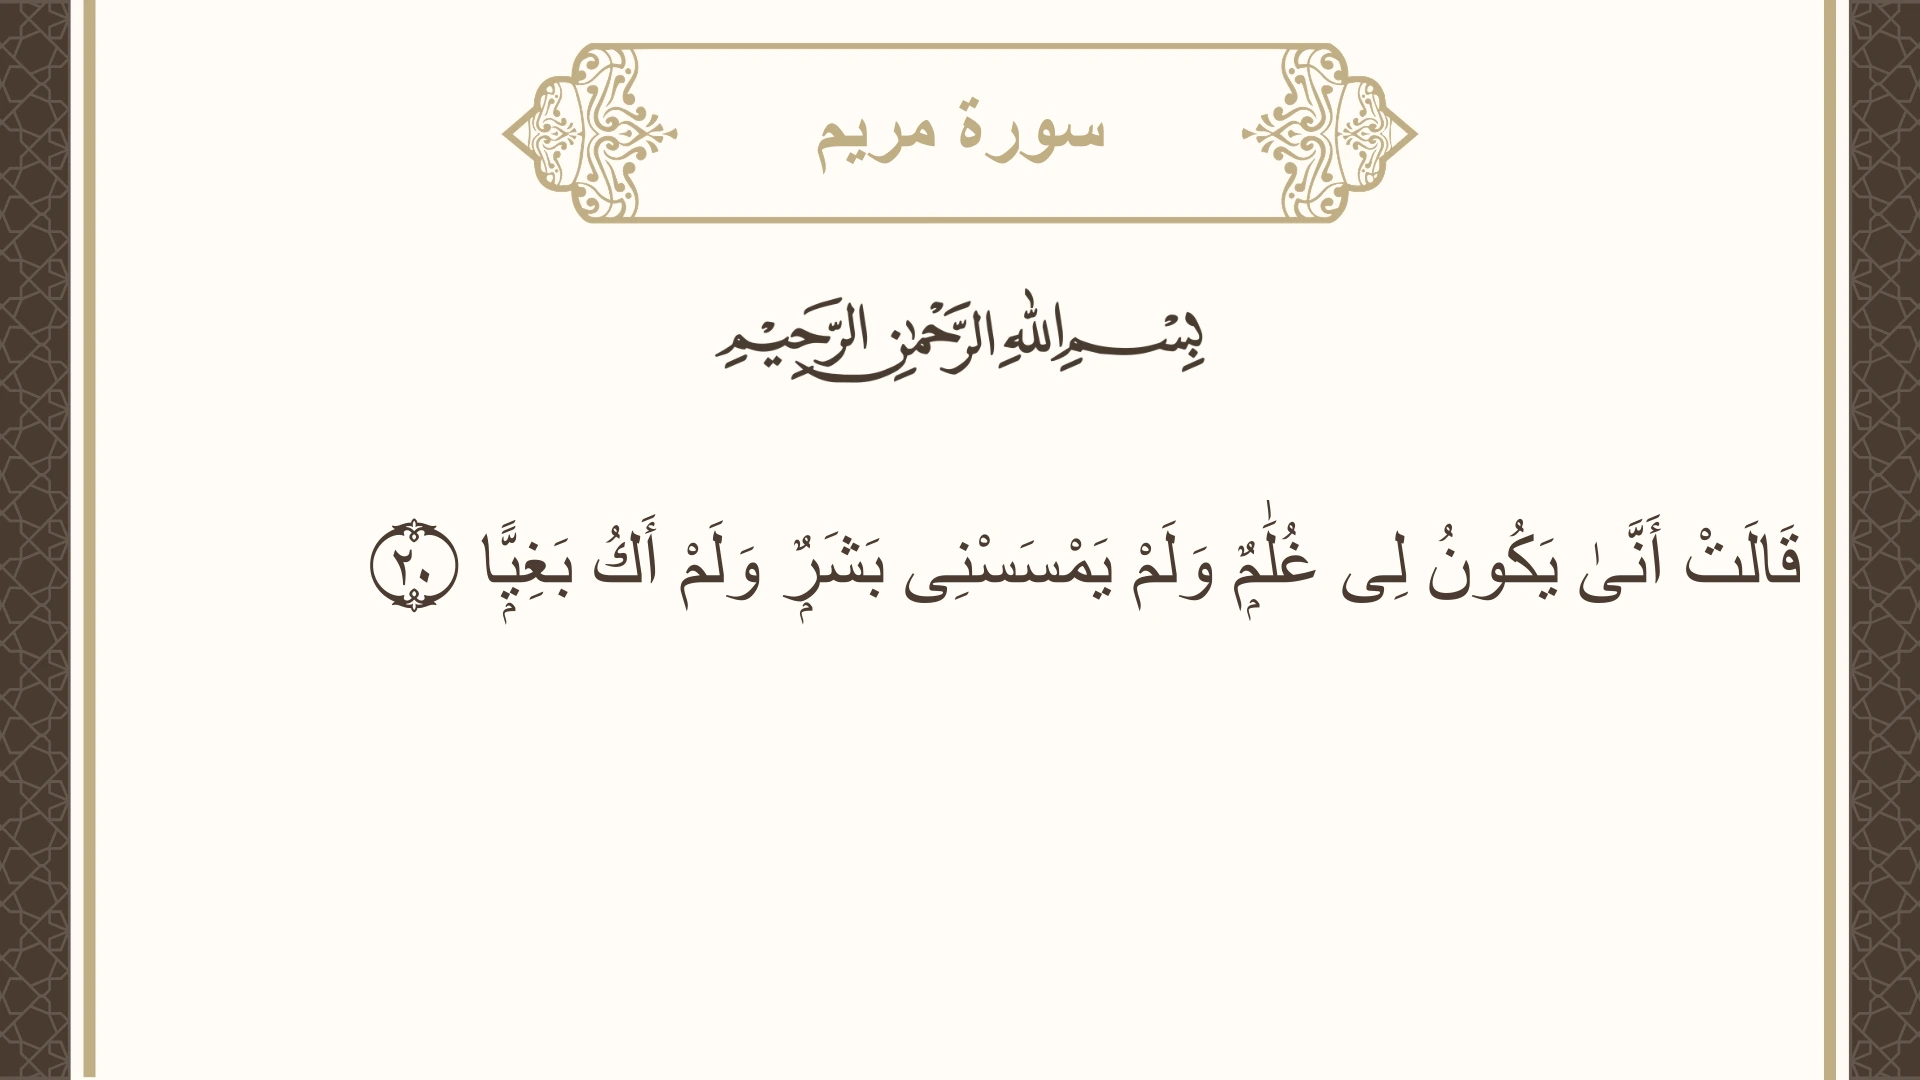 سورة مريم
بِسْمِ اللهِ الرَّحْمٰنِ الرَّحِيْمِ
قَالَتْ أَنَّىٰ يَكُونُ لِى غُلَٰمٌۭ وَلَمْ يَمْسَسْنِى بَشَرٌۭ وَلَمْ أَكُ بَغِيًّۭا ٢٠